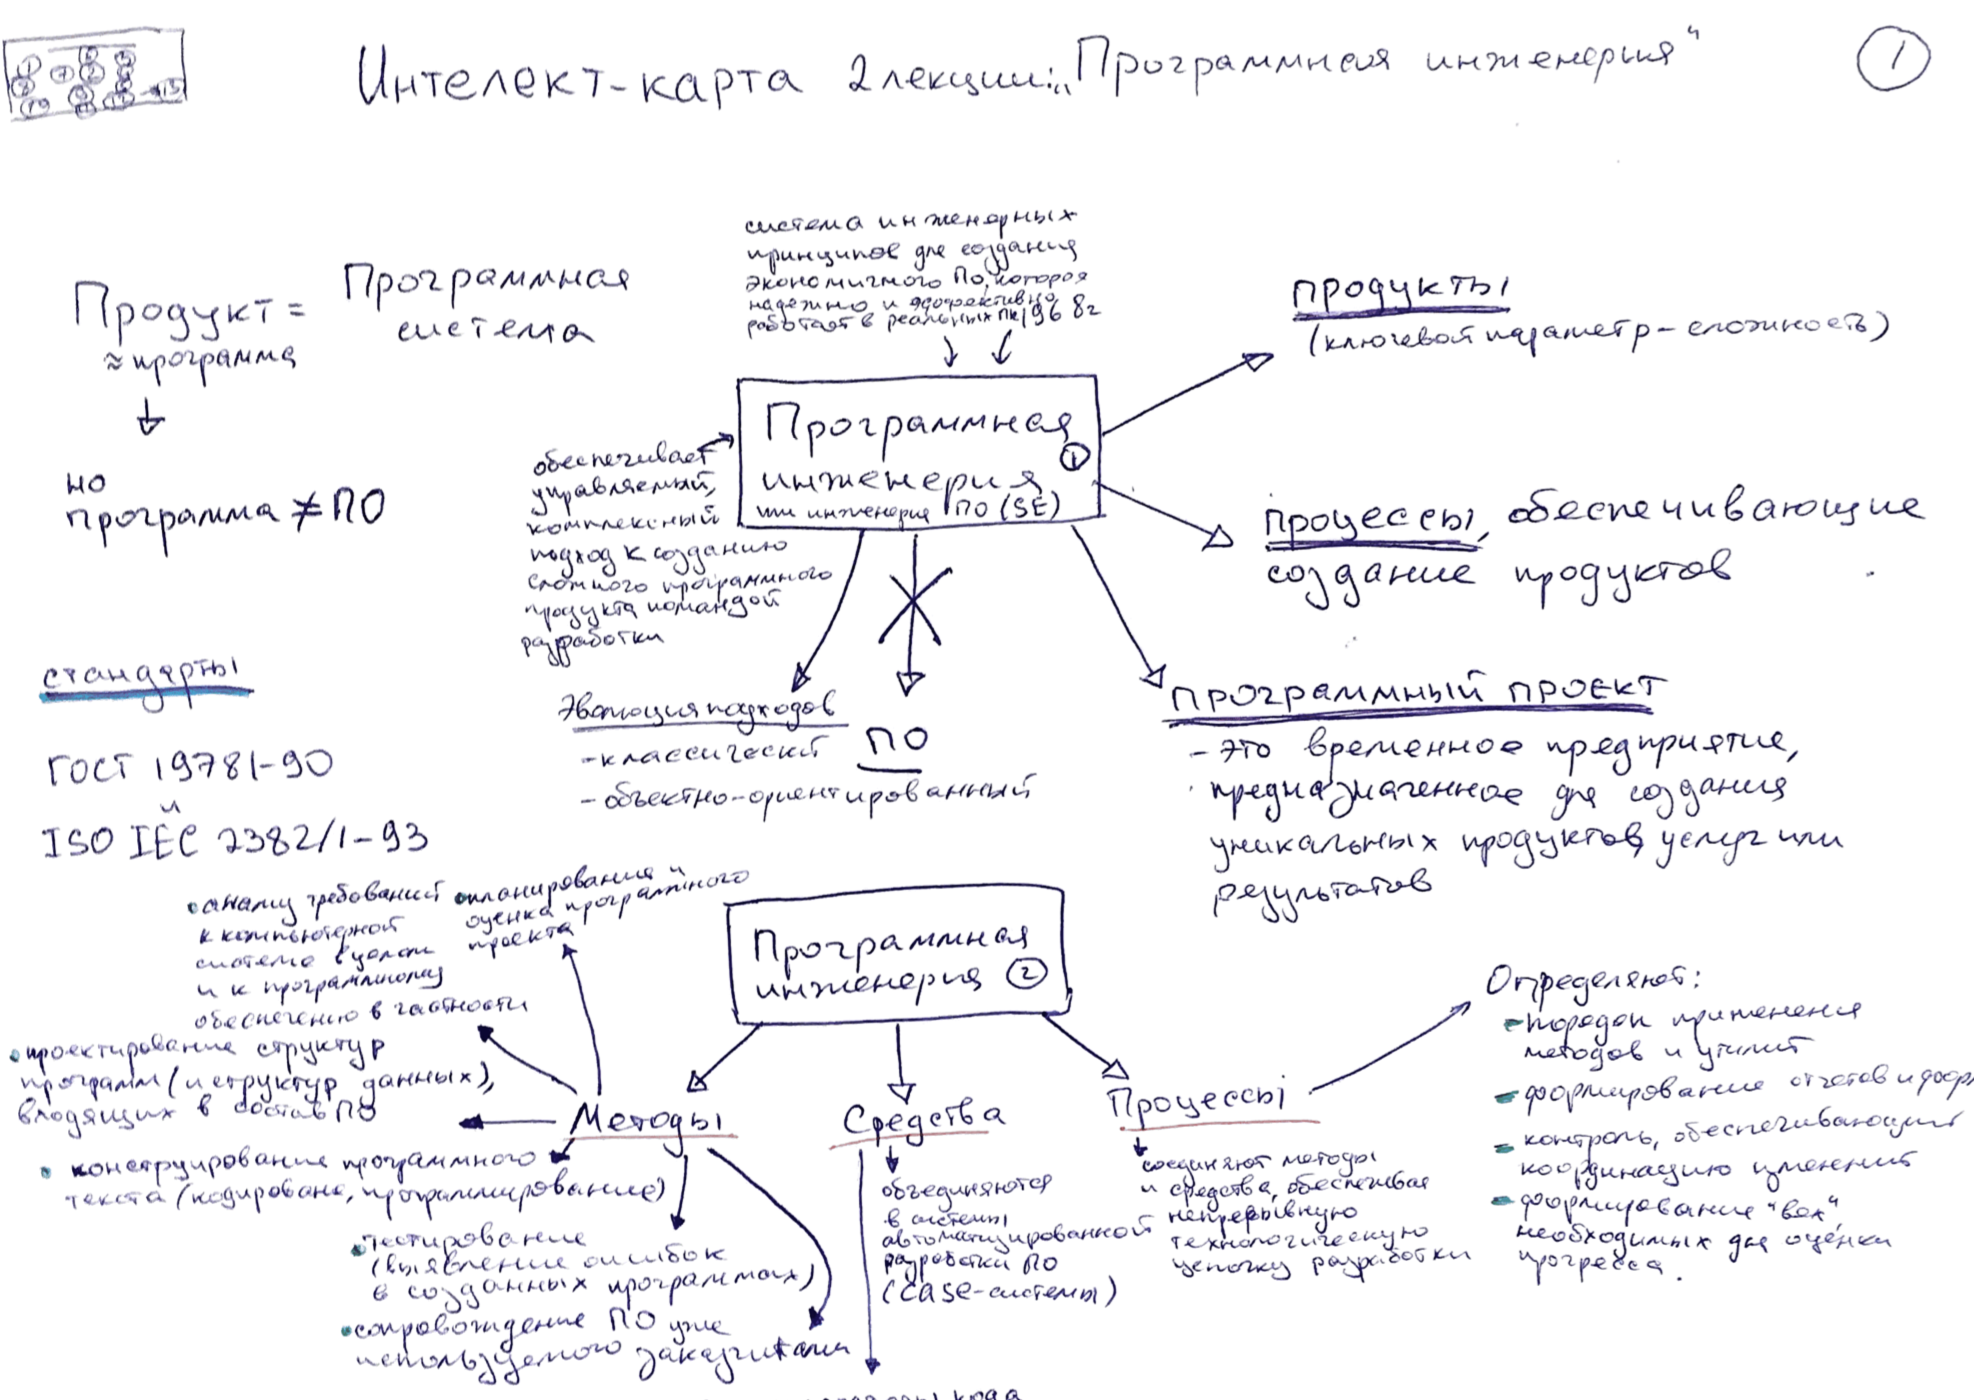 Интелект-карта 2 лекции: „Программная инженерия“
1
система инженерных
принципов для создания
экономичного ПО, которая
надежно и эффективно
работает в реальных ПК 1968г
Продукт =
Программная
система
≈ программа
но
программа ≠ ПО
стандарты
ГОСТ 19781-90
и
ISO IEC 2382/1-93
обеспечивает
управляемый,
комплексный
подход к созданию
сложного программного
продукта командой
разработки
Программная
1
инженерия
или инженерия ПО (SE)
продукты
(ключевой параметр - сложность)
процессы, обеспечивающие
создание продуктов
программный проект
- это временное предприятие,
предназначенное для создания
уникальных продуктов, услуг или
результатов
Эволюция подходов
- классический
- объектно-ориентированный
ПО
Программная
инженерия 2
Методы
• анализ требований
к компьютерной
системе в целом
и к программному
обеспечению в частности
• планирование и
оценка программного
проекта
• проектирование структур
программ (и структур данных),
входящих в состав ПО
• конструирование программного
текста (кодирование, программирование)
• тестирование
(выявление ошибок
в созданных программах)
• сопровождение ПО уже
используемого заказчиками
Средства
объединяются
в системы
автоматизированной
разработки ПО
(CASE-системы)
кода
Процессы
соединяют методы
и средства, обеспечивая
непрерывную
технологическую
цепочку разработки
Определяют:
- порядок применения
методов и утилит
- формирование отчетов и
- контроль, обеспечивающий
координацию изменений
- формирование "вех",
необходимых для оценки
прогресса.